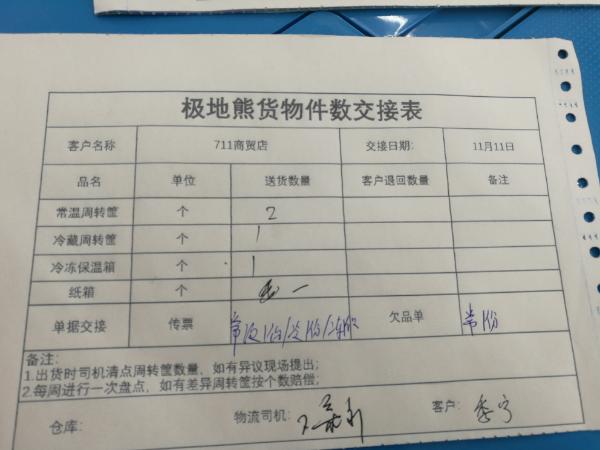 极地熊货物件数交接表
客户名称 711商贸店 交接日期: 11月11日
品名 单位 送货数量 客户退回数量 备注
常温周转筐 个 2
冷藏周转筐 个 1
冷冻保温箱 个 1
纸箱 个 一
单据交接 传票 欠品单
备注:
1.出货时司机清点周转筐数量、如有异议现场提出;
2.每周进行一次盘点，如有差异周转筐按个数赔偿;
仓库: 物流司机: 客户: